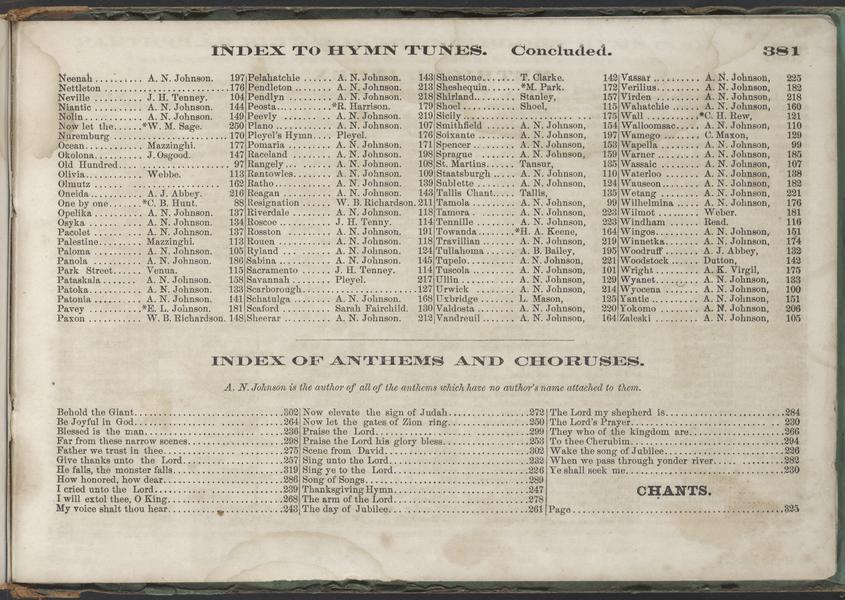 INDEX TO HYMN TUNES. Concluded. 381
Neenah .......... A. N. Johnson. 197
Nettleton ........ 176
Neville .......... J. H. Tenney. 104
Niantic .......... A. N. Johnson. 144
Nolin .......... A. N. Johnson. 149
Now let the......*W. M. Sage. 250
Nuremburg ........ 170
Ocean........... Mazzinghi. 177
Okolona......... J. Osgood. 147
Old Hundred........ 97
Olivia.......... Webbe. 113
Olmutz ........ 162
Oneida .......... A. J. Abbey. 216
One by one .....*C. B. Hunt. 88
Opelika ......... A. N. Johnson. 137
Osyka .......... A. N. Johnson. 134
Pacolet ......... A. N. Johnson. 137
Palestine........ Mazzinghi. 113
Paloma ......... A. N. Johnson. 105
Panola .......... A. N. Johnson. 186
Park Street...... Venua. 115
Pataskala ....... A. N. Johnson. 158
Patoka.......... A. N. Johnson. 133
Patonia ......... A. N. Johnson. 141
Pavey ..........*E. L. Johnson. 181
Paxon .......... W. B. Richardson. 148
Pelahatchie ...... A. N. Johnson. 143
Pendleton ........ A. N. Johnson. 213
Pendlyn ......... A. N. Johnson. 218
Peosta..........*R. Harrison. 179
Peevly .......... A. N. Johnson. 219
Plano ........... A. N. Johnson. 107
Pleyel's Hymn.... Pleyel. 176
Pomaria ........ A. N. Johnson. 171
Raceland ........ A. N. Johnson. 198
Rangely......... A. N. Johnson. 108
Rantowles........ A. N. Johnson. 109
Ratho........... A. N. Johnson. 139
Reagan ......... A. N. Johnson. 143
Resignation ...... W. B. Richardson. 211
Riverdale ....... A. N. Johnson. 118
Roscoe .......... J. H. Tenny. 114
Rosston ......... A. N. Johnson. 191
Rouen .......... A. N. Johnson. 118
Ryland .......... A. N. Johnson. 124
Sabina .......... A. N. Johnson. 145
Sacramento ...... J. H. Tenney. 114
Savannah ....... Pleyel. 217
Scarborough........ 127
Schatulga ....... A. N. Johnson. 168
Seaford ......... Sarah Fairchild. 130
Sheerar ......... A. N. Johnson. 212
Shenstone....... T. Clarke. 142
Sheshequin......*M. Park. 172
Shirland......... Stanley, 157
Shoel ........... Shoel, 115
Sicily ........ 175
Smithfield ....... A. N. Johnson, 154
Solxante ........ A. N. Johnson, 197
Spencer ......... A. N. Johnson, 153
Sprague ........ A. N. Johnson, 159
St. Martins...... Tansur, 135
Staatsburgh ..... A. N. Johnson, 110
Sublette ........ A. N. Johnson, 124
Tallis Chant..... Tallis, 135
Tamola ......... A. N. Johnson, 99
Tamora ......... A. N. Johnson, 223
Tennille ........ A. N. Johnson, 223
Towanda.......*H. A. Keene, 164
Travillian ....... A. N. Johnson, 219
Tullahoma ...... A. B. Bailey, 195
Tupelo.......... A. N. Johnson, 221
Tuscola ......... A. N. Johnson, 101
Ullin ........... A. N. Johnson, 129
Urwick ......... A. N. Johnson, 214
Uxbridge ....... L. Mason, 125
Valdosta ........ A. N. Johnson, 220
Vandreuil ....... A. N. Johnson, 164
Vassar .......... A. N. Johnson, 225
Verilius.......... A. N. Johnson, 182
Virden .......... A. N. Johnson, 218
Wahatchie ....... A. N. Johnson, 160
Wall ...........*C. H. Rew, 121
Walloomsac...... A. N. Johnson, 110
Wamego ........ C. Maxon, 129
Wapella ......... A. N. Johnson, 99
Warner ......... A. N. Johnson, 185
Wassaic ......... A. N. Johnson, 107
Waterloo ........ A. N. Johnson, 138
Wauseon ........ A. N. Johnson, 182
Wetang ......... A. N. Johnson, 221
Wilhelmina ...... A. N. Johnson, 176
Wilmot ......... Weber. 181
Windham ....... Read. 116
Wingos.......... A. N. Johnson, 151
Winnetka........ A. N. Johnson, 174
Woodruff ....... A. J. Abbey, 132
Woodstock ...... Dutton, 142
Wright .......... A. K. Virgil, 175
Wyanet.......... A. N. Johnson, 133
Wyocena ........ A. N. Johnson, 100
Yantic .......... A. N. Johnson, 151
Yokomo ......... A. N. Johnson, 206
Zaleski .......... A. N. Johnson, 105
INDEX OF ANTHEMS AND CHORUSES.
A. N. Johnson is the author of all of the anthems which have no author's name attached to them.
Behold the Giant........302
Be Joyful in God........264
Blessed is the man........236
Far from these narrow scenes........298
Father we trust in thee........275
Give thanks unto the Lord........257
He falls, the monster falls........319
How honored, how dear........286
I cried unto the Lord........239
I will extol thee, O King........268
My voice shalt thou hear........243
Now elevate the sign of Judah........272
Now let the gates of Zion ring........250
Praise the Lord........299
Praise the Lord his glory bless........253
Scene from David........302
Sing unto the Lord........232
Sing ye to the Lord........226
Song of Songs........289
Thanksgiving Hymn........247
The arm of the Lord........278
The day of Jubilee........261
The Lord my shepherd is........284
The Lord's Prayer........230
They who of the kingdom are........266
To thee Cherubim........294
Wake the song of Jubilee........226
When we pass through yonder river........282
Ye shall seek me........230
CHANTS.
Page........325